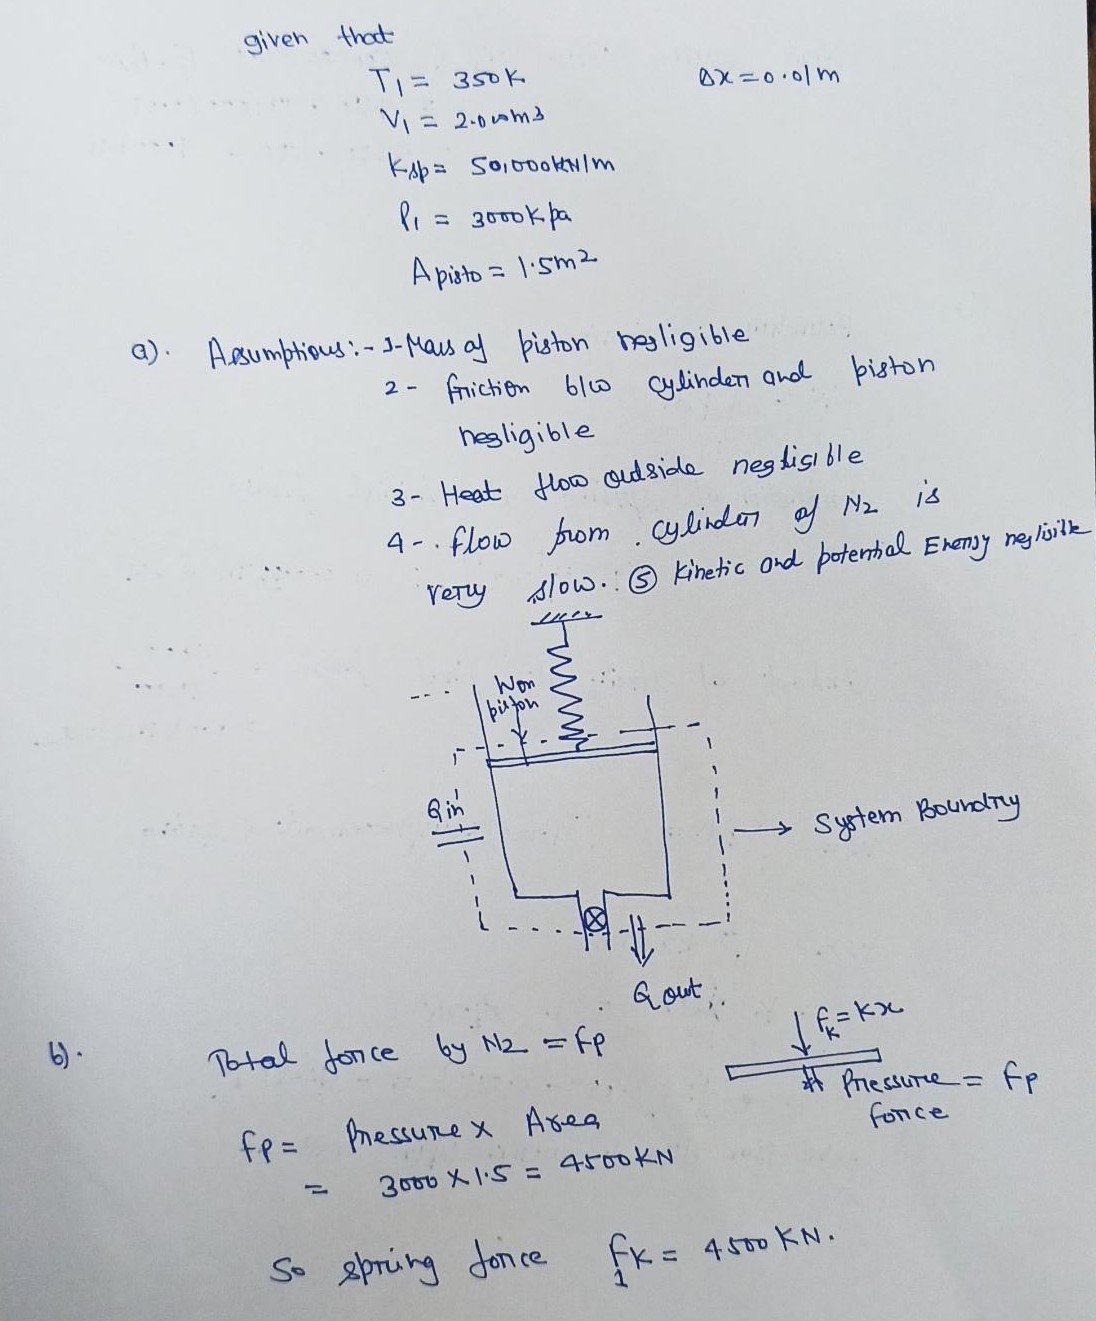 given that
T1 = 350K
Δx = 0.01m
V1 = 2.000m3
Ksp = 50,000kN/m
P1 = 3000Kpa
Apisto = 1.5m2
a). Assumptions:- 1-Mass of piston negligible
2- friction b/w cylinder and piston
negligible
3- Heat flow outside negligible
4-. flow from cylinder of N2 is
very slow. ⑤ Kinetic and potential Energy negligible
Won
piston
Qin
→ System Boundry
Qout
b). Total force by N2 = Fp
fk = kx
Pressure = Fp
force
fp = Pressure x Area
= 3000 x 1.5 = 4500KN
So spring force fk1 = 4500 KN.